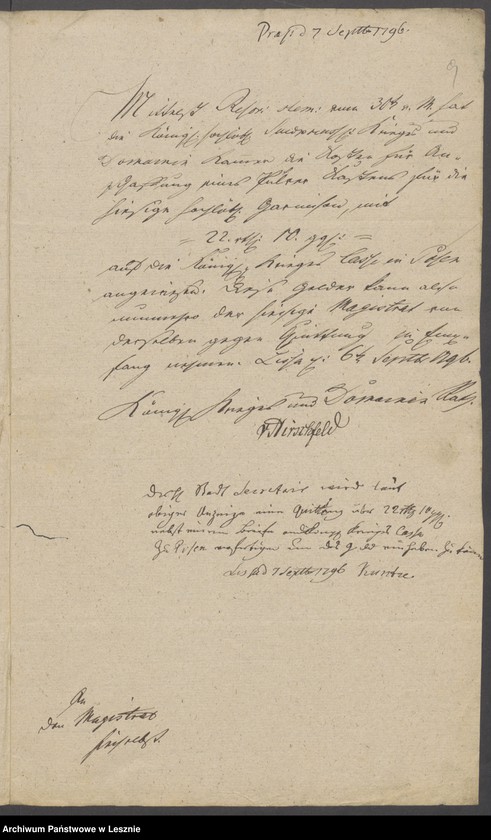 Präs. d 7 Septbr 1796.
9
Mittelst Rescr: clem: vom 30t v. M. hat
die Königl. Südpreuß. Krieges und
Domainen Kammer die Kosten für An-
schaffung eines Pulver Kastens für die
hiesige Garnison, mit
= 22. rthl: 10. ggr: =
auf die Königl. Krieges Casse in Posen
angewiesen. Diese Gelder kann also
nunmehro der hiesige Magistrat von
derselben gegen Quittung in Em-
pfang nehmen. Lissa d: 6t Septbr 1796.
Königl. Krieges und Domainen Rath.
v Hirschfeld
Der Stadt Secretair wird laut
obiger Anzeige eine Quittung über 22 rthlr 10 ggr.
nebst einem Briefe an die Königl. Krieges Casse
zu Posen
Lissa d 7 Septbr 1796
An
den Magistrat
hieselbst.
Archiwum Państwowe w Lesznie